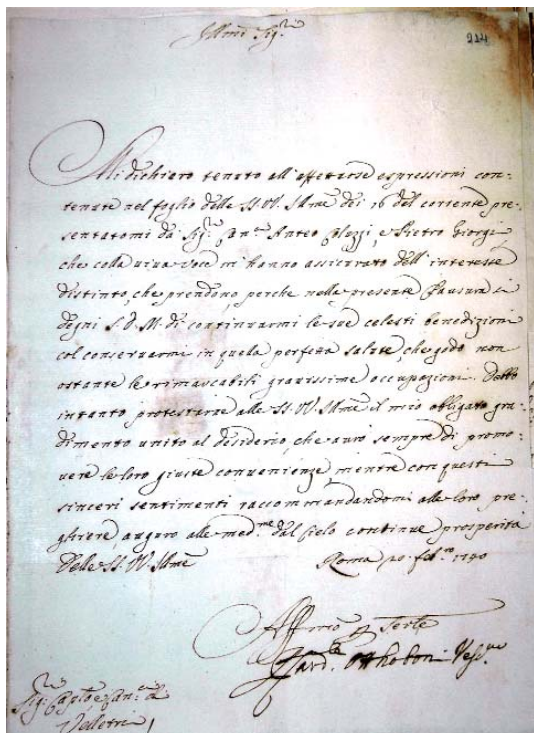 Ill.mi Sig.ri
224
Mi dichiaro tenuto all'affettuose espressioni con-
tenute nel foglio delle SS. VV. Ill.me dei 16 del corrente pre-
sentatomi da Sig.ri Can.ci Anteo e Pietro Giorgi,
che colla viva voce m'hanno assicurato dell'interesse
distinto, che prendono, perche nella presente Clausura si
degni S. D. M. di continuarmi le sue celesti benedizioni
col conservarmi in quella perfetta salute, che godo non
ostante le rimarcabili gravissime occupazioni. Debbo
intanto protestarne alle SS. VV. Ill.me il mio obligato gra-
dimento unito al desiderio, che avrò sempre di promo-
vere le loro giuste convenienze, mentre con questi
sinceri sentimenti raccommandandomi alle loro pre-
ghiere, auguro alle med.me dal Cielo continue prosperità
Delle SS. VV. Ill.me Roma 20 feb.ro 1740
Aff.mo
Card. Otthoboni Vesc.vo
Sig.ri Cap.lo e Can.ci di
Velletri